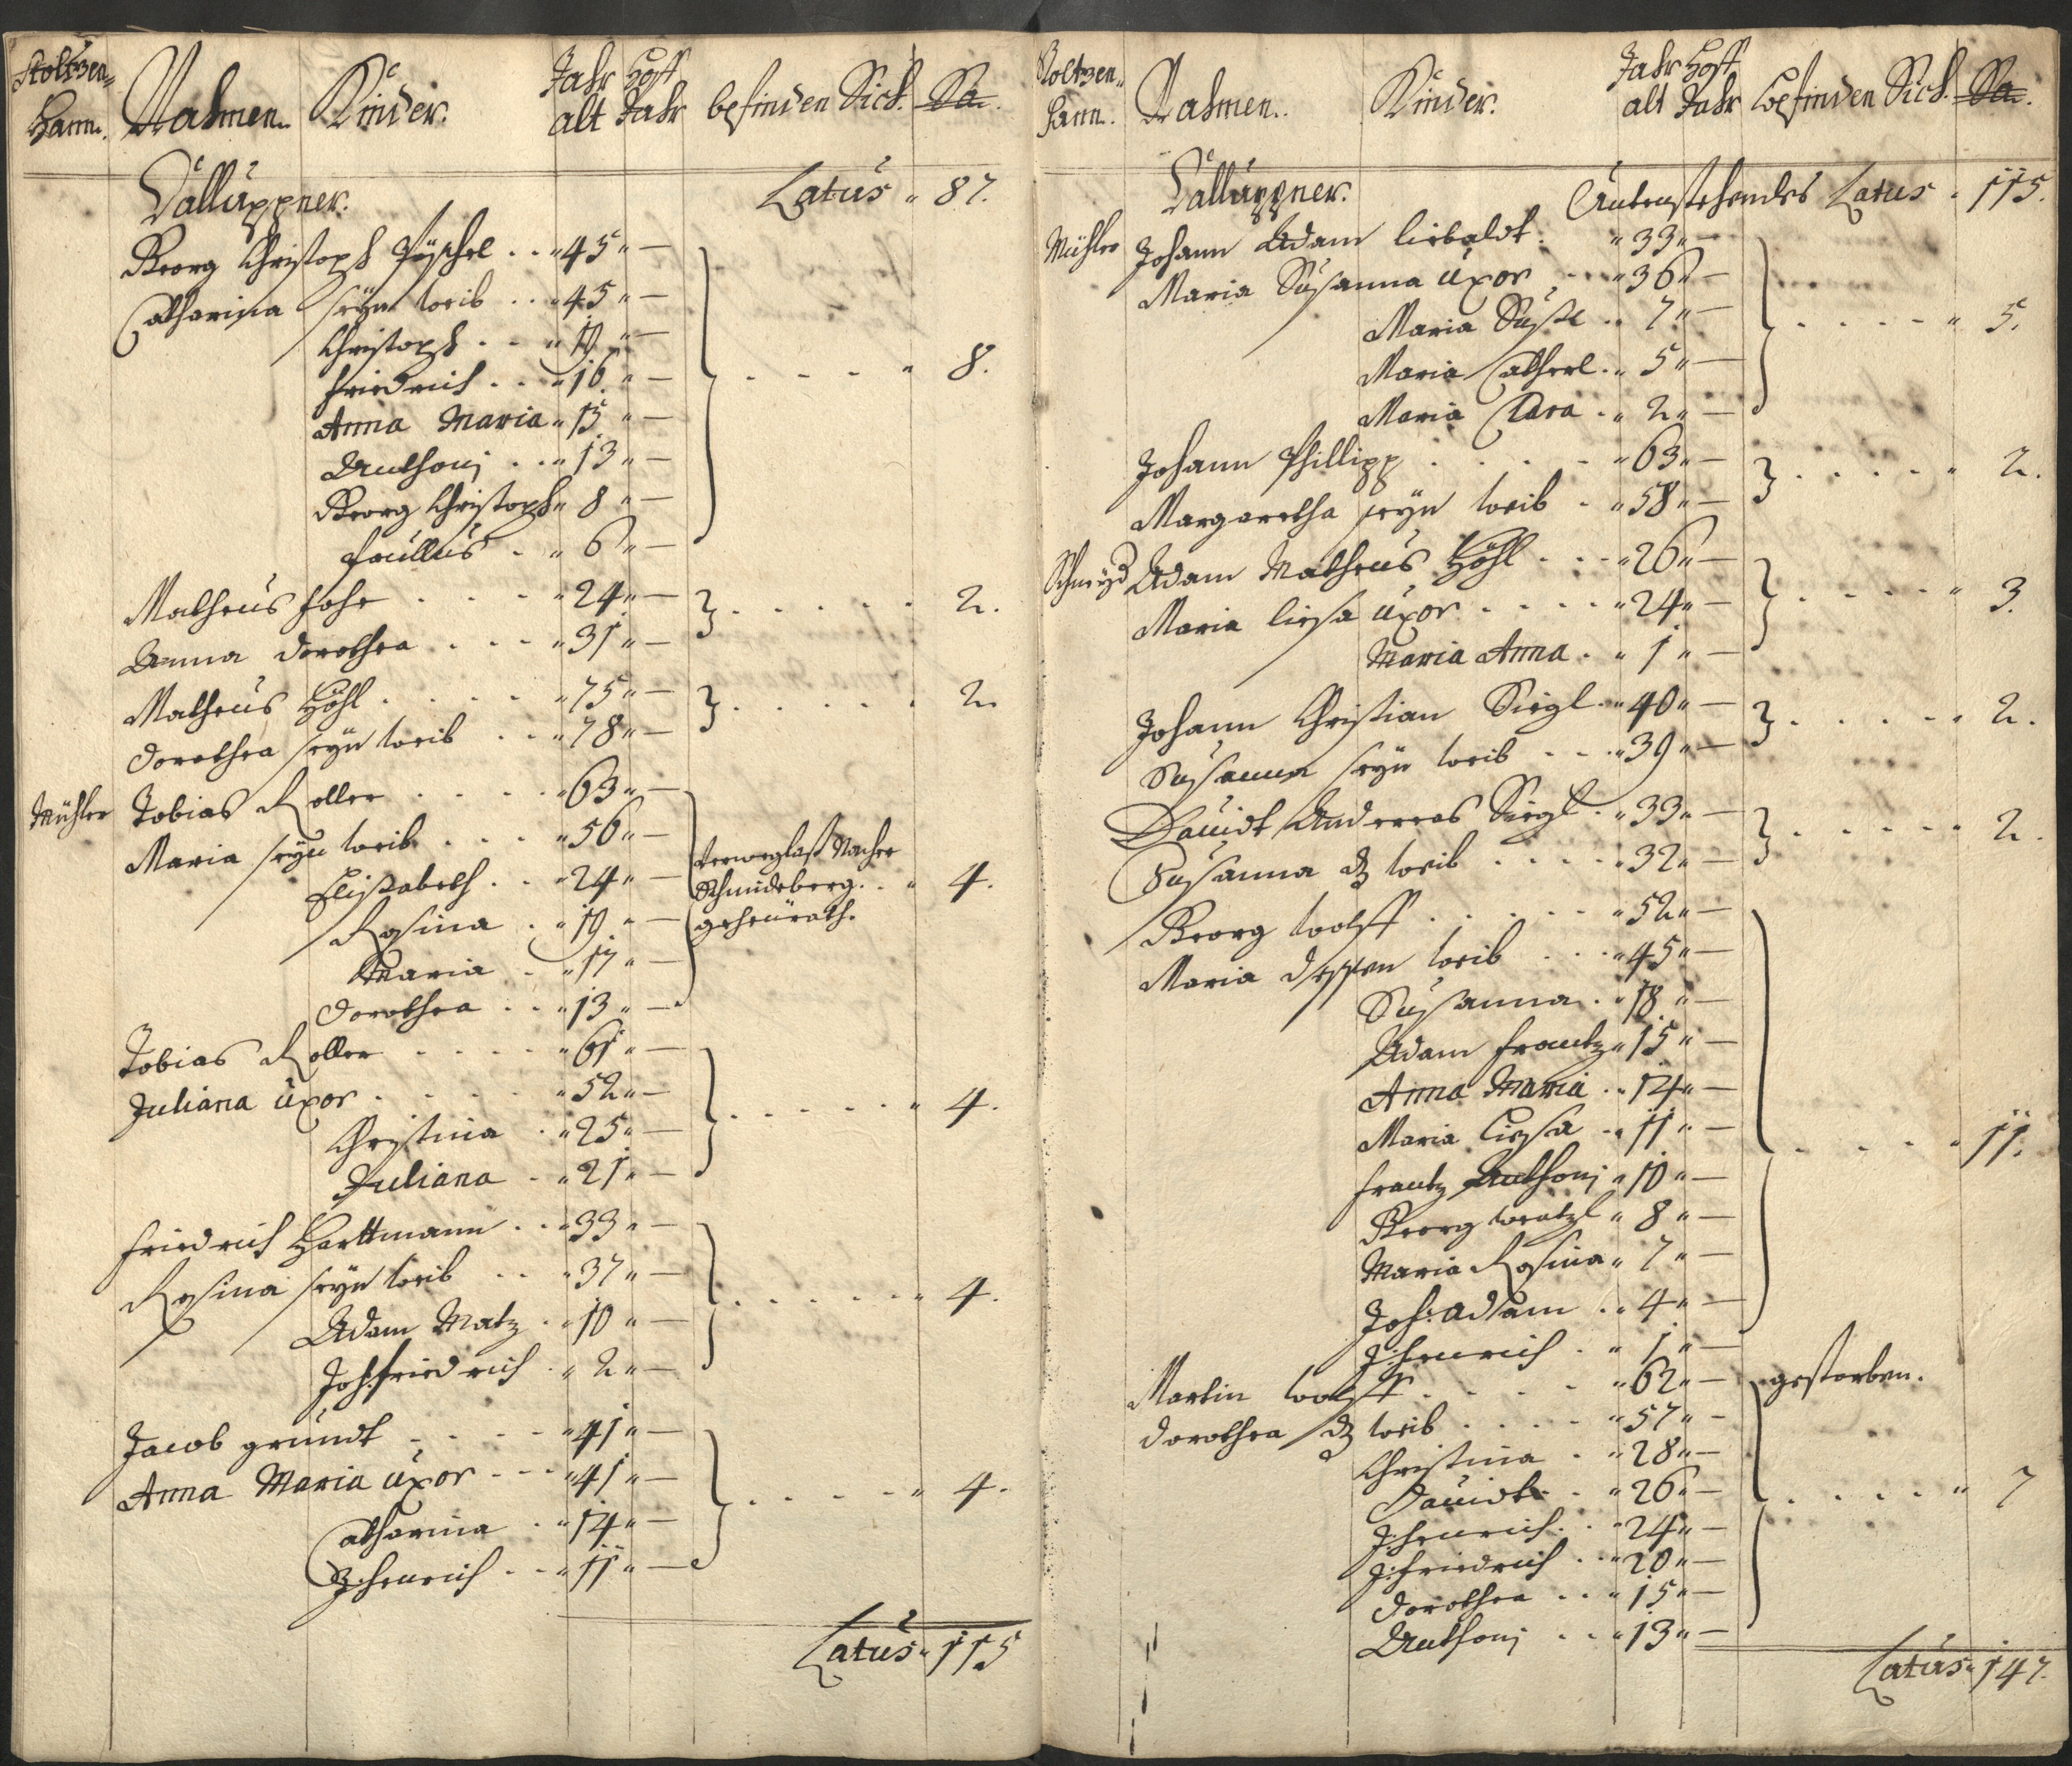 Stoltzen-
Hann. Nahmen. Kinder. Jahr alt Hoff Jahr befinden Sich. Sa.
Calluppner. Latus " 87.
Georg Christoph Püschel . . " 45 " —
Catharina seyn weib . . " 45 " —
Christoph . . " 19 " —
Friedrich . . " 16 " —
Anna Maria " 15 " —
Anthonj . . " 13 " —
Georg Christoph " 8 " —
" 6 " — . . . . " 8.
Matheus . . . " 24 " —
Anna Dorothea . . . " 31 " — . . . . . 2.
Matheus Höhl . . . . " 75 " —
Dorothea seyn weib . . " 78 " — . . . . . 2.
Mühler Tobias Roller . . . . " 63 " —
Maria seyn weib . . . " 56 " —
Elisabeth . . " 24 " — Schmideberg . . " 4.
Rosina . " 19 " — geheürath.
Maria . " 17 " —
Dorothea . . " 13 " —
Tobias Roller . . . . " 61 " —
Juliana uxor . . . . " 52 " —
Christina . " 25 " —
Juliana . " 21 " — . . . . . " 4.
Friedrich Harttmann . . " 33 " —
Rosina seyn weib . . " 37 " —
Adam Matz . " 10 " —
Joh: friedrich . " 2 " — . . . . . " 4.
Jacob gründt . . . . " 41 " —
Anna Maria uxor . . . " 41 " —
Catharina . " 14 " —
J: henrich . . " 11 " — . . . . . " 4.
Latus " 115
Stoltzen-
hann. Nahmen. Kinder. Jahr alt Hoff Jahr befinden Sich. Sa.
Calluppner. Latus . 115.
Mühler Johann Adam liebaldt . " 33 " —
Maria Susanna uxor . . " 36 " —
Maria Susl . . 7 " —
Maria Catherl . " 5 " —
Maria Clara . " 2 " — . . . . . " 5.
Johann Phillipp . . . . " 63 " —
Margaretha seyn weib . " 58 " — . . . . . " 2.
Schmyd Adam Matheus Höhl . . . " 26 " —
Maria liesa uxor . . . . " 24 " —
Maria Anna . " 1 " — . . . . . " 3.
Johann Christian Siegl . " 40 " —
Susanna seyn weib . . . " 39 " — . . . . . " 2.
Dauidt Andereas Siegl . " 33 " —
Susanna weib . . . . " 32 " — . . . . . " 2.
Georg wolff . . . . . " 52 " —
Maria dessen weib . . . " 45 " —
Susanna . " 18 " —
Adam frantz " 15 " —
Anna Maria . . 14 " —
Maria Liesa . . 11 " —
frantz Anthonj " 10 " —
Georg wentzl " 8 " —
Maria Rosina " 7 " —
Joh: Adam . . 4 " —
J: henrich . " 1 " — . . . . " 11.
Martin wolff . . . . " 62 " — gestorben.
Dorothea weib . . . . " 57 " —
Christina . " 28 " —
Dauidt . . " 26 " —
J: henrich . . " 24 " —
J: friedrich . . " 20 " —
Dorothea . . " 15 " —
Anthonj . . " 13 " — . . . . " 7
Latus " 147.